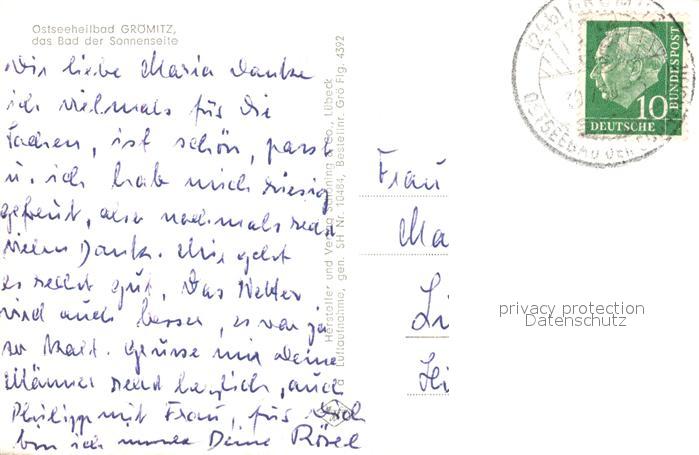 Ostseeheilbad GRÖMITZ,
das Bad der Sonnenseite
Dir liebe Maria danke
ich vielmals für die
Sachen, ist schön, passt
u. ich hab mich riesig
gefreut, also nochmals recht
vielen Dank. Mir geht
es recht gut, das Wetter
wird auch besser, es war ja
so kalt. Grüsse mir deine
Männer recht herzlich, auch
Philipp mit Frau, für Dich
bin ich immer Deine Rösel
Hersteller und Verlag Schöning & Co., Lübeck
Luftaufnahme, gen. SH Nr. 10484, Bestellnr. Grö Flg. 4392
Frau
Ma
Li
Hi
(24b) GRÖMITZ
OSTSEEBAD DER
10
DEUTSCHE
BUNDESPOST
privacy protection
Datenschutz